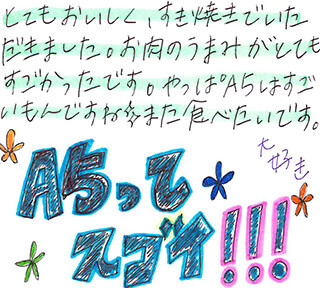 とてもおいしく、すき焼きでいた
だきました。お肉のうまみがとても
すごかったです。やっぱ。A5はすご
いもんですね☆また食べたいです。
大好き
A5って
スゴイ!!!